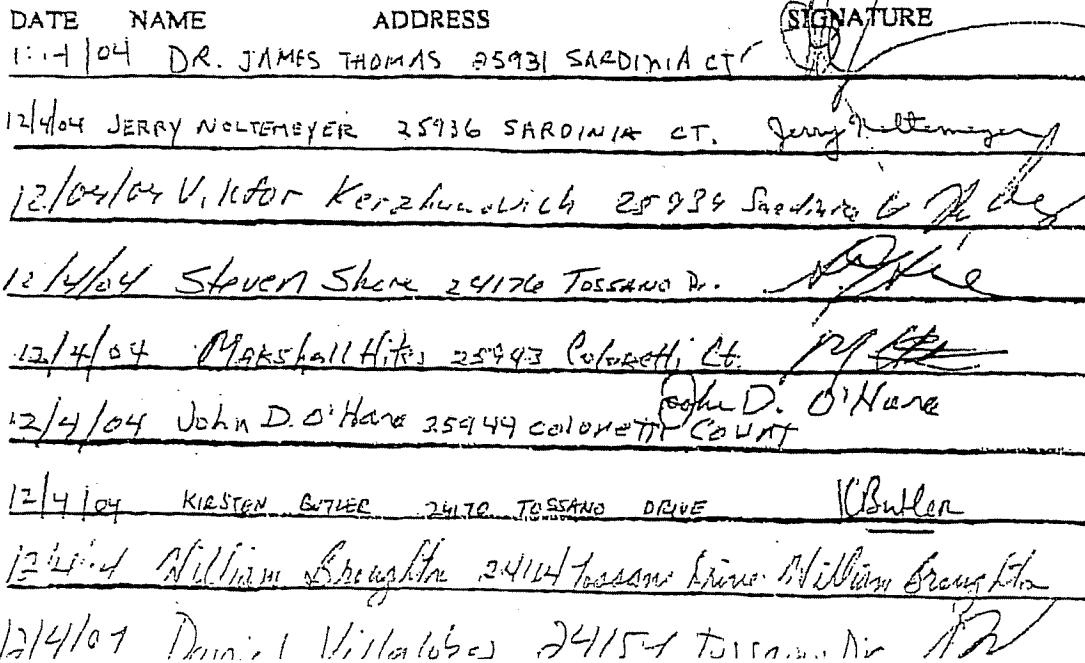 DATE NAME ADDRESS SIGNATURE
/04 DR. JAMES THOMAS 25931 SARDINIA CT
12/4/04 JERRY NOLTEMEYER 25936 SARDINIA CT. Jerry Noltemeyer
12/04/04 Viktor 25939 Sardinia Ct
12/4/04 Steven Shere 24176 TOSSANO Dr.
12/4/04 MARShall Hites 25943 Coloretti Ct.
12/4/04 John D. O'Hara 25949 coloretti COURT John D. O'Hara
12/4/04 KIRSTEN BUTLER 24170 TOSSANO DRIVE KButler
William Broughton Tossano Drive William Broughton
12/4/04 Daniel Villalobos 24154 Tossano Dr